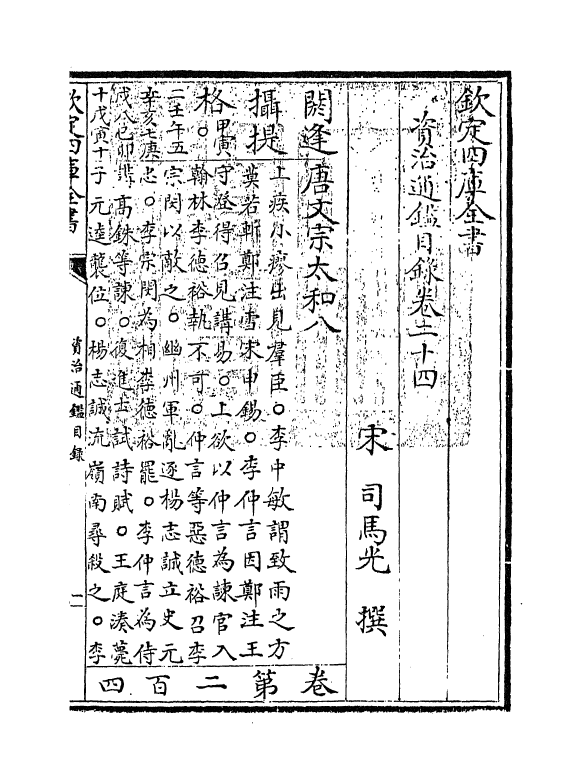 欽定四庫全書
資治通鑑目錄卷二十四
宋 司馬光 撰
閼逢 唐文宗太和八
攝提 上疾小瘳出見羣臣。李中敏謂致雨之方
莫若斬鄭注雪宋申錫。李仲言因鄭注王
格。甲寅 守澄得召見講易。上欲以仲言為諫官入
翰林李德裕執不可。仲言等惡德裕召李
二壬午五 宗閔以敵之。幽州軍亂逐楊志誠立史元
辛亥七庚 忠。李宗閔為相李德裕罷。李仲言為侍
戌八己卯 講高銖等諫。復進士試詩賦。王庭湊薨
十戊寅十 子元逵襲位。楊志誠流嶺南尋殺之。李
卷第二百四
欽定四庫全書
資治通鑑目錄